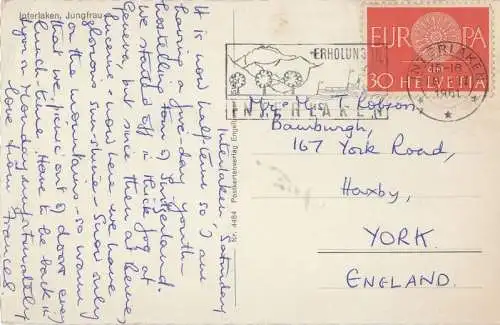 Interlaken, Jungfrau
Interlaken, Saturday
It is now half-term so I am
having a five-day youth-
hostelling tour of Switzerland.
We started off in thick fog at
Geneva, but since then at Berne,
Lucerne & now here we have
glorious sun-shine - Snow only
on the mountains - so warm
that we picnic out of doors every
lunch-time. Have to be back in
on Monday unfortunately
love from
Frances
Nr. 4484 Postkartenverlag
ERHOLUNG
INTERLAKEN
EUROPA
30 HELVETIA
INTERLAKEN
1961
Mr. & Mrs T. Robson,
Bamburgh,
167 York Road,
Haxby,
YORK.
ENGLAND.